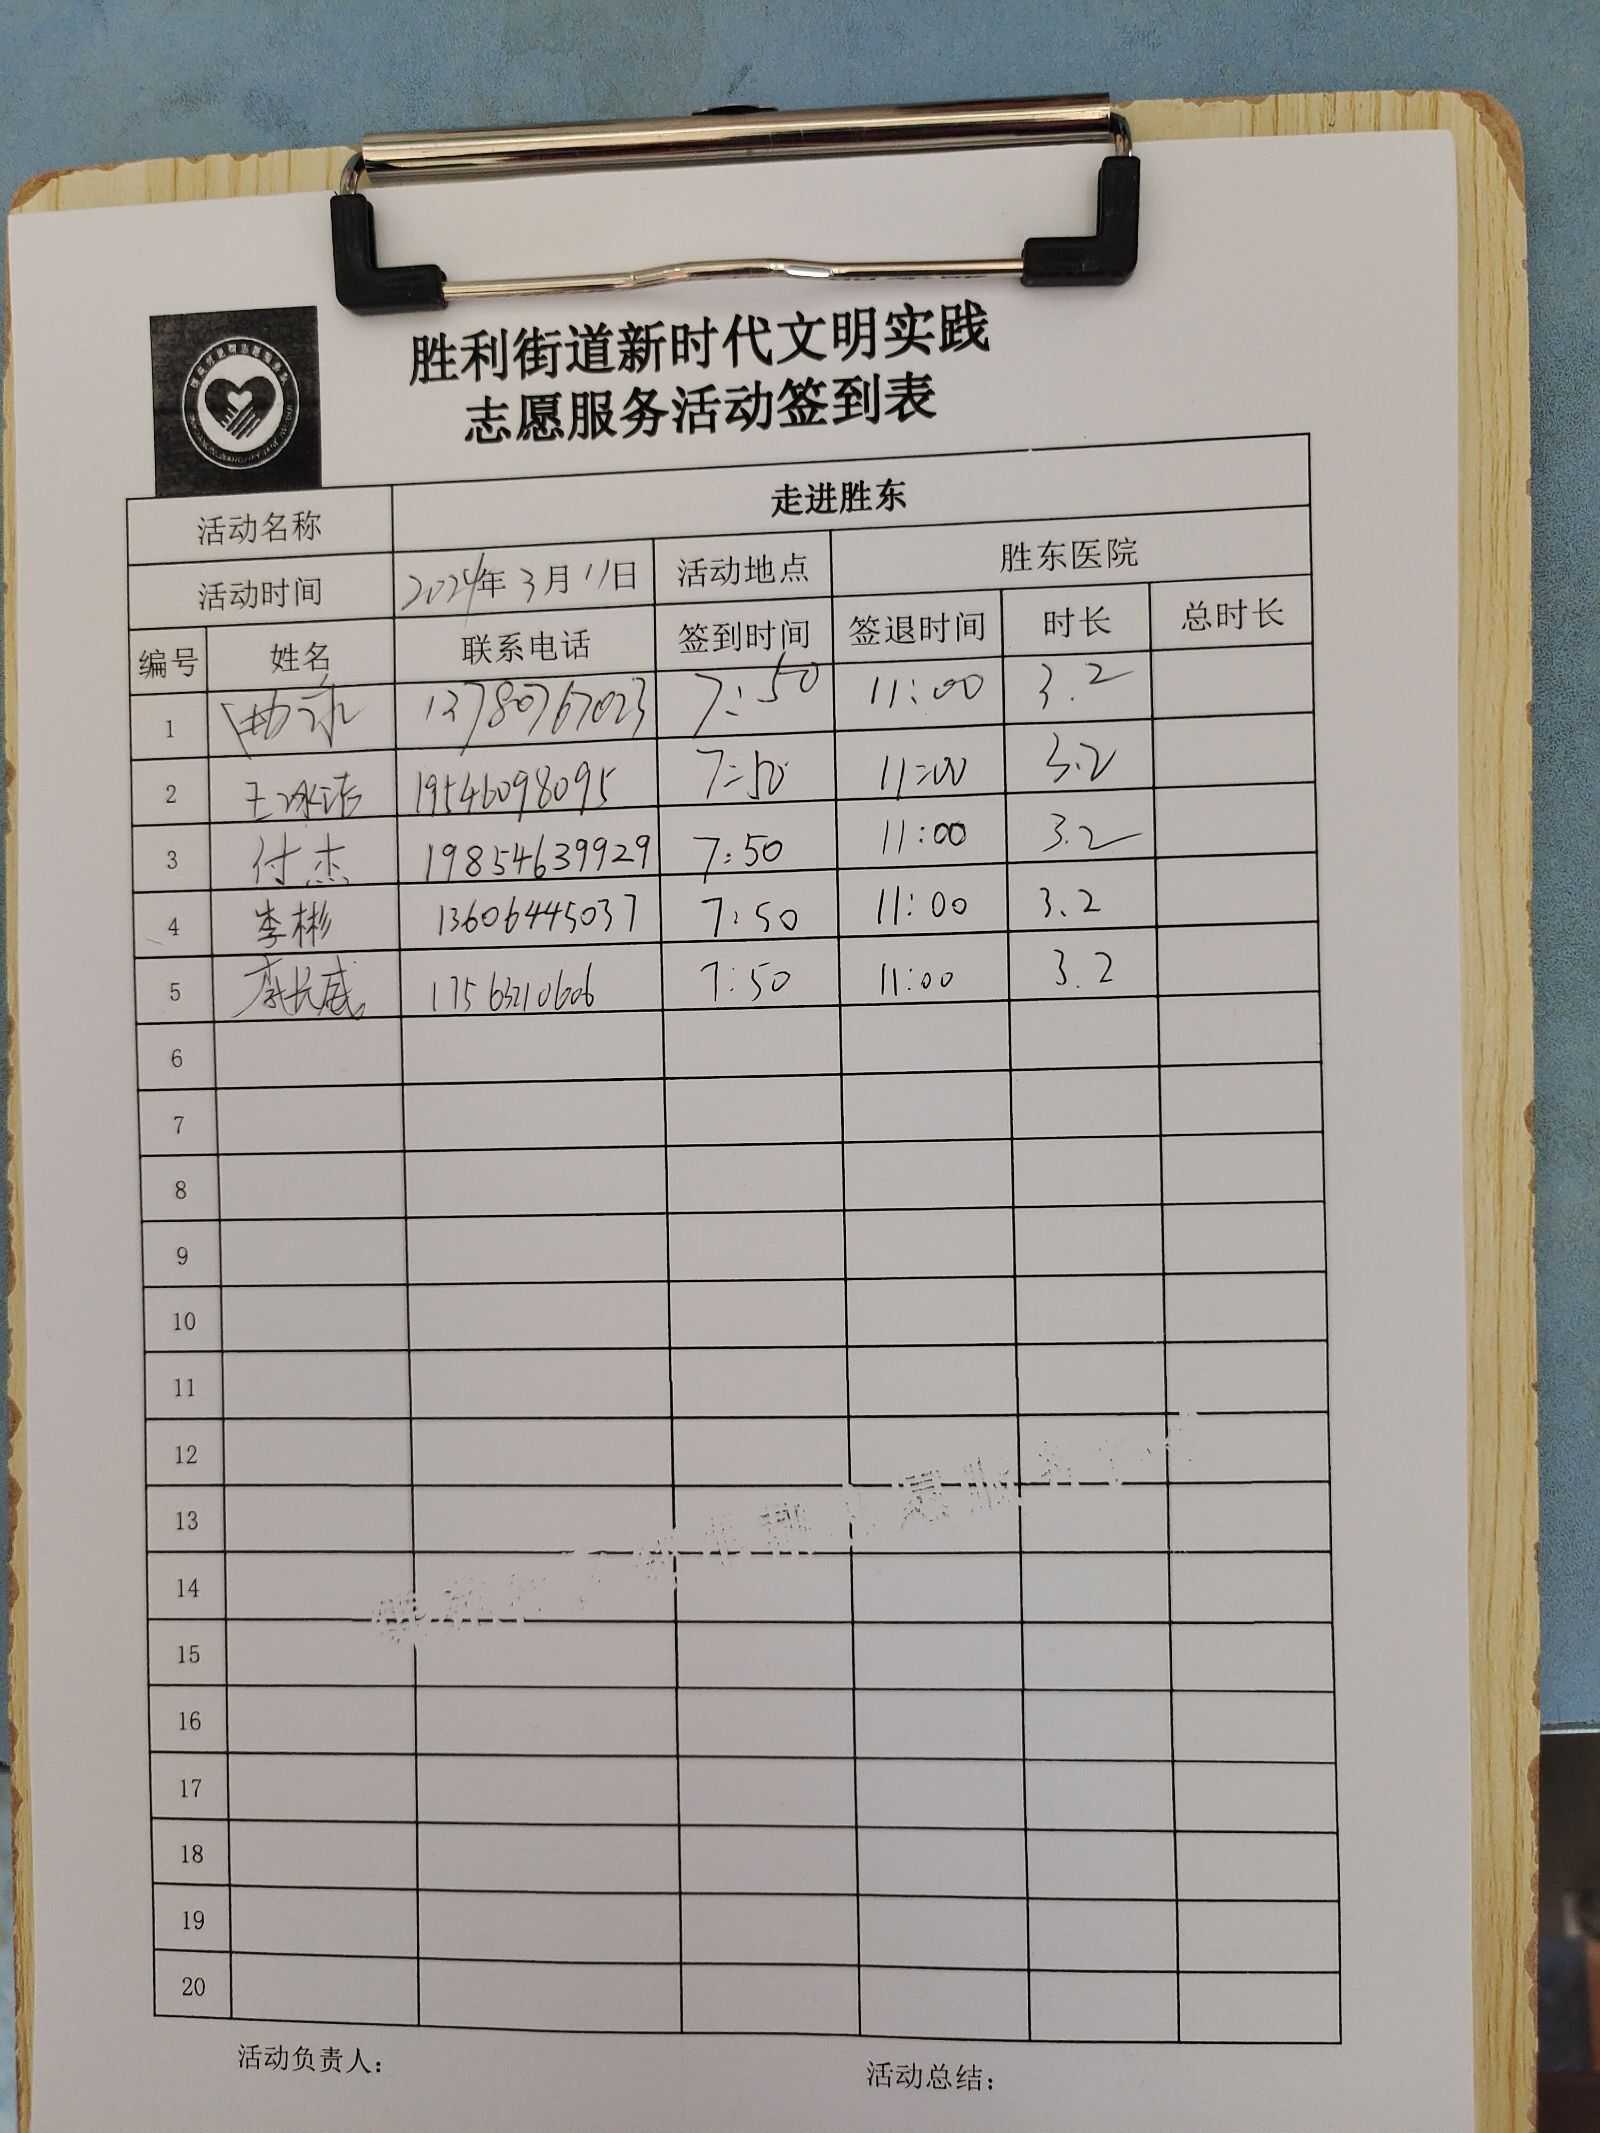 胜利街道新时代文明实践
志愿服务活动签到表
活动名称 走进胜东
活动时间 2024年3月11日 活动地点 胜东医院
编号 姓名 联系电话 签到时间 签退时间 时长 总时长
1 13780767023 7:50 11:00 3.2
2 王冰洁 19546098095 7:50 11:00 3.2
3 付杰 19854639929 7:50 11:00 3.2
4 李彬 13606445037 7:50 11:00 3.2
5 李长威 17563210606 7:50 11:00 3.2
6
7
8
9
10
11
12
13
14
15
16
17
18
19
20
活动负责人: 活动总结: